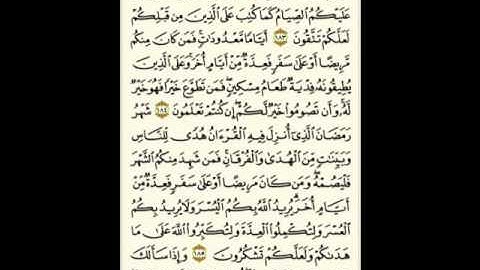 عَلَيْكُمُ ٱلصِّيَامُ كَمَا كُتِبَ عَلَى ٱلَّذِينَ مِن قَبْلِكُمْ
لَعَلَّكُمْ تَتَّقُونَ ١٨٣ أَيَّامًا مَّعْدُودَٰتٍ فَمَن كَانَ مِنكُم
مَّرِيضًا أَوْ عَلَىٰ سَفَرٍ فَعِدَّةٌ مِّنْ أَيَّامٍ أُخَرَ وَعَلَى ٱلَّذِينَ
يُطِيقُونَهُۥ فِدْيَةٌ طَعَامُ مِسْكِينٍ فَمَن تَطَوَّعَ خَيْرًا فَهُوَ خَيْرٌ
لَّهُۥ وَأَن تَصُومُوا۟ خَيْرٌ لَّكُمْ إِن كُنتُمْ تَعْلَمُونَ ١٨٤ شَهْرُ
رَمَضَانَ ٱلَّذِىٓ أُنزِلَ فِيهِ ٱلْقُرْءَانُ هُدًى لِّلنَّاسِ
وَبَيِّنَٰتٍ مِّنَ ٱلْهُدَىٰ وَٱلْفُرْقَانِ فَمَن شَهِدَ مِنكُمُ ٱلشَّهْرَ
فَلْيَصُمْهُ وَمَن كَانَ مَرِيضًا أَوْ عَلَىٰ سَفَرٍ فَعِدَّةٌ مِّنْ
أَيَّامٍ أُخَرَ يُرِيدُ ٱللَّهُ بِكُمُ ٱلْيُسْرَ وَلَا يُرِيدُ بِكُمُ
ٱلْعُسْرَ وَلِتُكْمِلُوا۟ ٱلْعِدَّةَ وَلِتُكَبِّرُوا۟ ٱللَّهَ عَلَىٰ مَا
هَدَىٰكُمْ وَلَعَلَّكُمْ تَشْكُرُونَ ١٨٥ وَإِذَا سَأَلَكَ